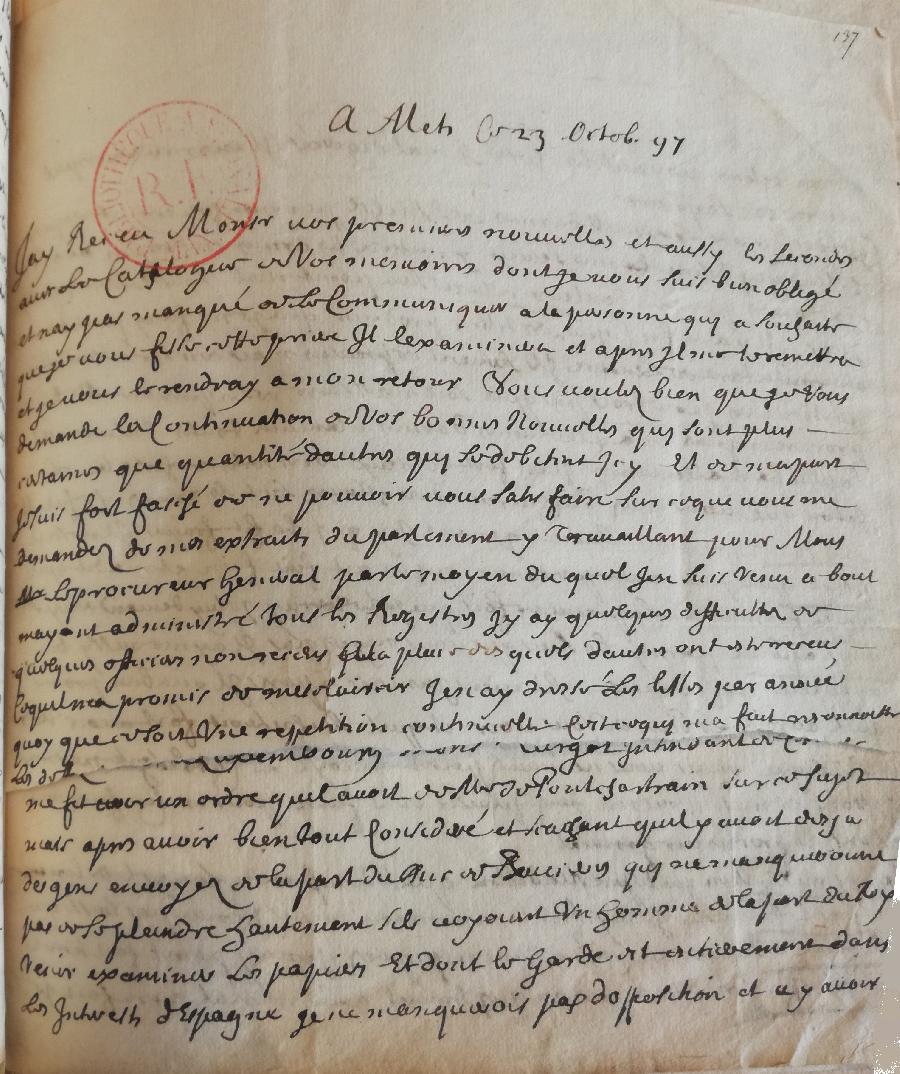 137
A Mets ce 23 Octob. 97
BIBLIOTHEQUE
R.F.
Jay Receu Monsr vos premieres nouvelles et aussy les secondes
avec Le Catalogue de Vos memoires dont je vous suis bien obligé
et nay pas manqué de le Communiquer a la personne qui a souhaité
que je vous fisse cette priere Il lexaminera et apres Il me le remettra
et je vous le rendray a mon retour Vous voulez bien que je Vous
demande la Continuation de Vos bonnes Nouvelles qui sont plus
certaines que quantité dautres qui se debitent Icy Et de ma part
Je suis fort fasché de ne pouvoir vous satisfaire sur ce que vous me
demandez de mes extraits du parlement y Travaillant pour Mons
Le procureur General par le moyen du quel Jen suis venu a bout
mayant administré tous les Registres Jy ay quelques difficultes de
quelques officiers non receus a la place des quels dautres ont esté receus
Ce quil ma promis de mesclaircir Jen ay dressé des listes par année
quoy que ce soit Une repetition continuelle Cest ce qui ma fait
Luxembourg Turgot Intendant de
me fit voir un ordre quil avoit de Mr de Pontchartrain sur ce sujet
mais apres avoir bien tout Consideré et scachant quil y avoit desja
des gens envoyez de la part du Duc de qui ne manqueroient
pas de se pleindre hautement sils voyoient Un homme de la part du Roy
Venir examiner Les papiers Et dont le Garde est entierement dans
Les Interests dEspagne je ne manquerois pas dopposition et a y avoir